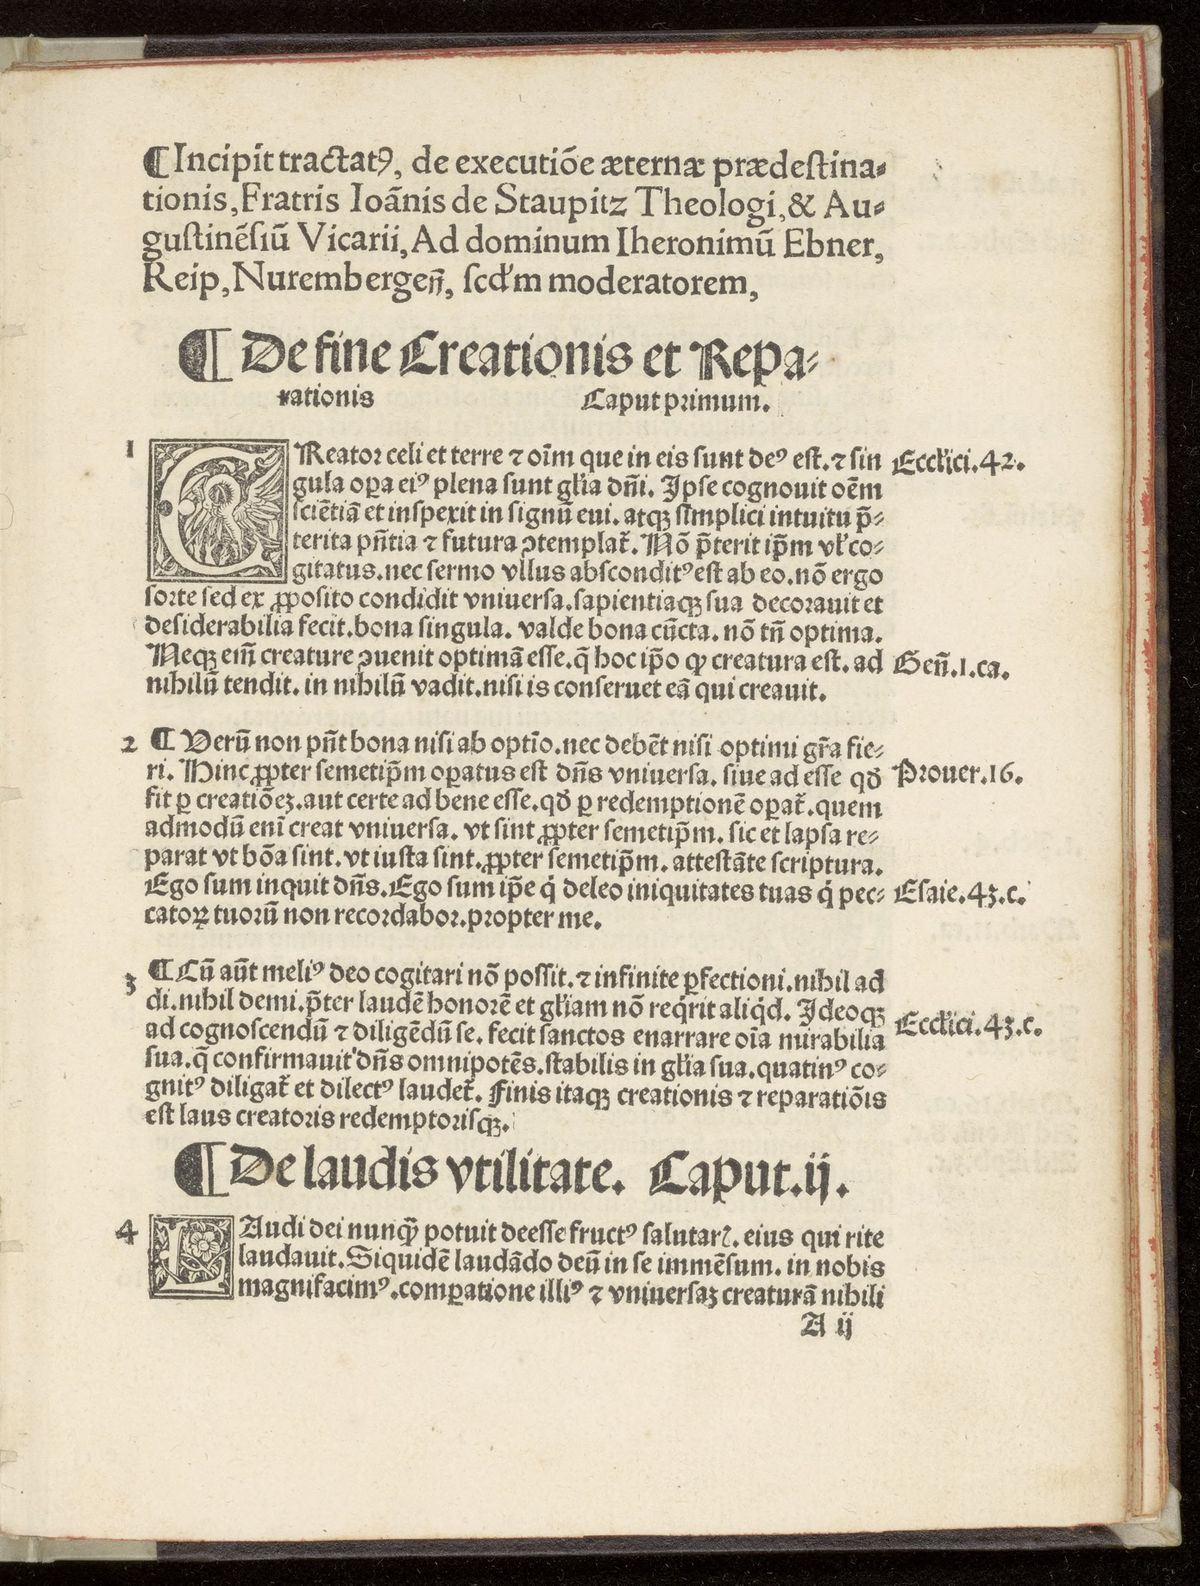 ¶ Incipit tractatꝰ, de executiōe æternæ prædestina⸗
tionis, Fratris Ioānis de Staupitz Theologi, & Au⸗
gustinēsiū Vicarii, Ad dominum Iheronimū Ebner,
Reip, Nurembergen̄, scd'm moderatorem,
¶ De fine Creationis et Repa⸗
rationis Caput primum.
1 CReator celi et terre ⁊ oīm que in eis sunt deꝰ est. ⁊ sin Eccl'ici. 42.
gula oꝑa eiꝰ plena sunt gl'ia dn̄i. Ipse cognouit oēm
sciētiā et inspexit in signū eui. atqꝫ simplici intuitu p̄⸗
terita pn̄tia ⁊ futura ꝯtemplat̄. Nō p̄terit ip̄m vl' co⸗
gitatus. nec sermo vllus absconditꝰ est ab eo. nō ergo
sorte sed ex ꝓposito condidit vniuersa. sapientiaqꝫ sua decorauit et
desiderabilia fecit. bona singula. valde bona cūcta. nō tn̄ optima.
Neqꝫ em̄ creature ꝯuenit optimā esse. q̄ hoc ip̄o ꝙ creatura est. ad Gen̄. 1. ca.
nihilū tendit. in nihilū vadit. nisi is conseruet eā qui creauit.
2 ¶ Verū non pn̄t bona nisi ab optīo. nec debēt nisi optimi gr̄a fie⸗
ri. Hinc ꝓpter semetip̄m oꝑatus est dn̄s vniuersa. siue ad esse qd̄ Prouer. 16.
fit ꝑ creatiōeꝫ. aut certe ad bene esse. qd̄ ꝑ redemptionē oꝑat̄. quem
admodū enī creat vniuersa. vt sint ꝓpter semetip̄m. sic et lapsa re⸗
parat vt bōa sint. vt iusta sint. ꝓpter semetip̄m. attestāte scriptura.
Ego sum inquit dn̄s. Ego sum ip̄e q̇ deleo iniquitates tuas q̇ pec⸗ Esaie. 43. c.
catoꝝ tuorū non recordabor. propter me.
3 ¶ Cū aūt meliꝰ deo cogitari nō possit. ⁊ infinite ꝑfectioni. nihil ad
di. nihil demi. p̄ter laudē honorē et gl'iam nō req̇rit aliq̇d. Ideoqꝫ
ad cognoscendū ⁊ diligēdū se. fecit sanctos enarrare oīa mirabilia Eccl'ici. 43. c.
sua. q̄ confirmauit dn̄s omnipotēs. stabilis in gl'ia sua. quatinꝰ co⸗
gnitꝰ diligat̄ et dilectꝰ laudet̄. Finis itaqꝫ creationis ⁊ reparatiōis
est laus creatoris redemptorisqꝫ.
¶ De laudis vtilitate. Caput. ij.
4 LAudi dei nunqꝫ̄ potuit deesse fructꝰ salutarꝭ. eius qui rite
laudauit. Siquidē laudādo deū in se immēsum. in nobis
magnifacimꝰ. comꝑatione illiꝰ ⁊ vniuersaꝫ creaturā nihili
A ij